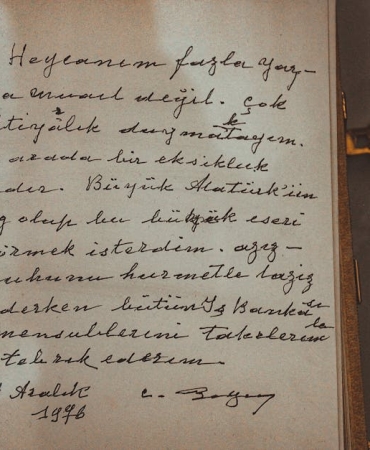 Heyecanım fazla yaz-
a müsait değil. Çok
tiyâlık duymaktayım.
arada bir eksiklik
dır. Büyük Atatürk'ün
ğ olup bu büyük eseri
örmek isterdim. aziz-
uhunu hürmetle taziz
derken bütün İş Bankası
mensublerini takdirlerimle
tebrik ederim.
Aralık
1976